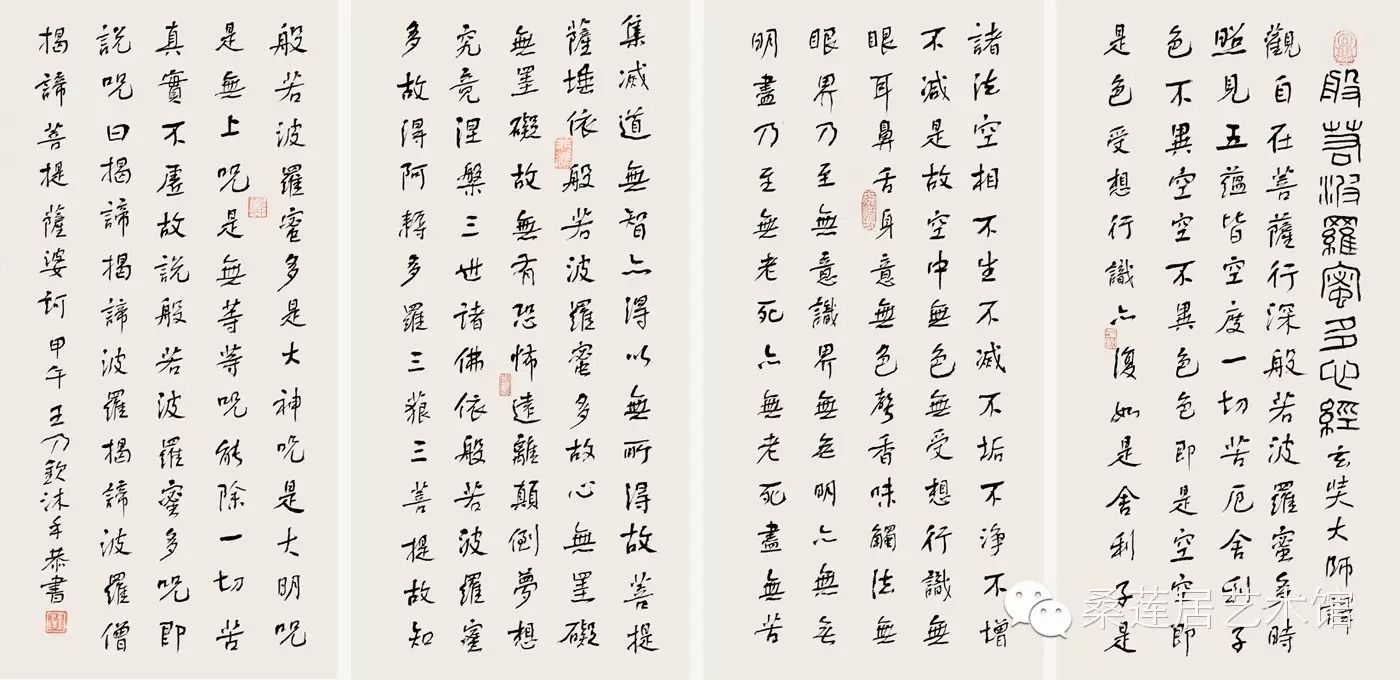 般若波羅蜜多心經 玄奘大師譯
觀自在菩薩行深般若波羅蜜多時
照見五蘊皆空度一切苦厄舍利子
色不異空空不異色色即是空空即
是色受想行識亦復如是舍利子是
諸法空相不生不滅不垢不淨不增
不減是故空中無色無受想行識無
眼耳鼻舌身意無色聲香味觸法無
眼界乃至無意識界無无明亦無无
明盡乃至無老死亦無老死盡無苦
集滅道無智亦得以無所得故菩提
薩埵依般若波羅蜜多故心無罣礙
無罣礙故無有恐怖遠離顛倒夢想
究竟涅槃三世諸佛依般若波羅蜜
多故得阿耨多羅三藐三菩提故知
般若波羅蜜多是大神咒是大明咒
是無上咒是無等等咒能除一切苦
真實不虛故說般若波羅蜜多咒即
說咒曰揭諦揭諦波羅揭諦波羅僧
揭諦菩提薩婆訶 甲午 王乃欽沐手恭書
桑莲居艺术馆